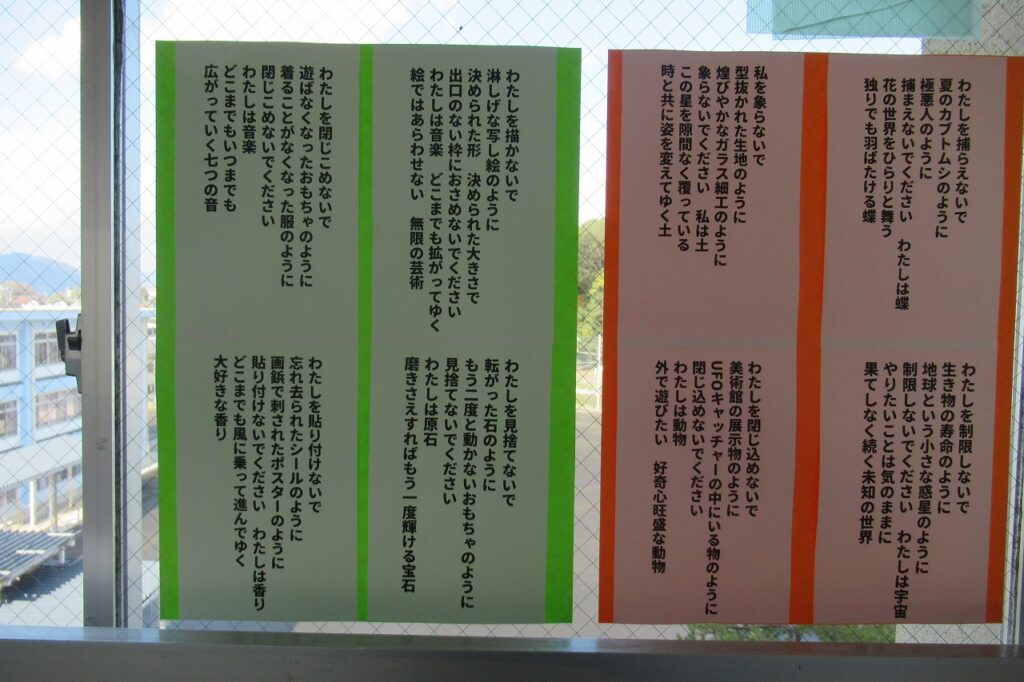 わたしを捕らえないで
夏のカブトムシのように
極悪人のように
捕まえないでください　わたしは蝶
花の世界をひらりと舞う
独りでも羽ばたける蝶
わたしを制限しないで
生き物の寿命のように
地球という小さな惑星のように
制限しないでください　わたしは宇宙
やりたいことは気のままに
果てしなく続く未知の世界
私を象らないで
型抜かれた生地のように
煌びやかなガラス細工のように
象らないでください　私は土
この星を隙間なく覆っている
時と共に姿を変えてゆく土
わたしを閉じ込めないで
美術館の展示物のように
UFOキャッチャーの中にいる物のように
閉じ込めないでください
わたしは動物
外で遊びたい　好奇心旺盛な動物
わたしを描かないで
淋しげな写し絵のように
決められた形　決められた大きさで
出口のない枠におさめないでください
わたしは音楽　どこまでも拡がってゆく
絵ではあらわせない　無限の芸術
わたしを見捨てないで
転がった石のように
もう二度と動かないおもちゃのように
見捨てないでください
わたしは原石
磨きさえすればもう一度輝ける宝石
わたしを閉じこめないで
遊ばなくなったおもちゃのように
着ることがなくなった服のように
閉じこめないでください
わたしは音楽
どこまでもいつまでも
広がっていく七つの音
わたしを貼り付けないで
忘れ去られたシールのように
画鋲で刺されたポスターのように
貼り付けないでください　わたしは香り
どこまでも風に乗って進んでゆく
大好きな香り